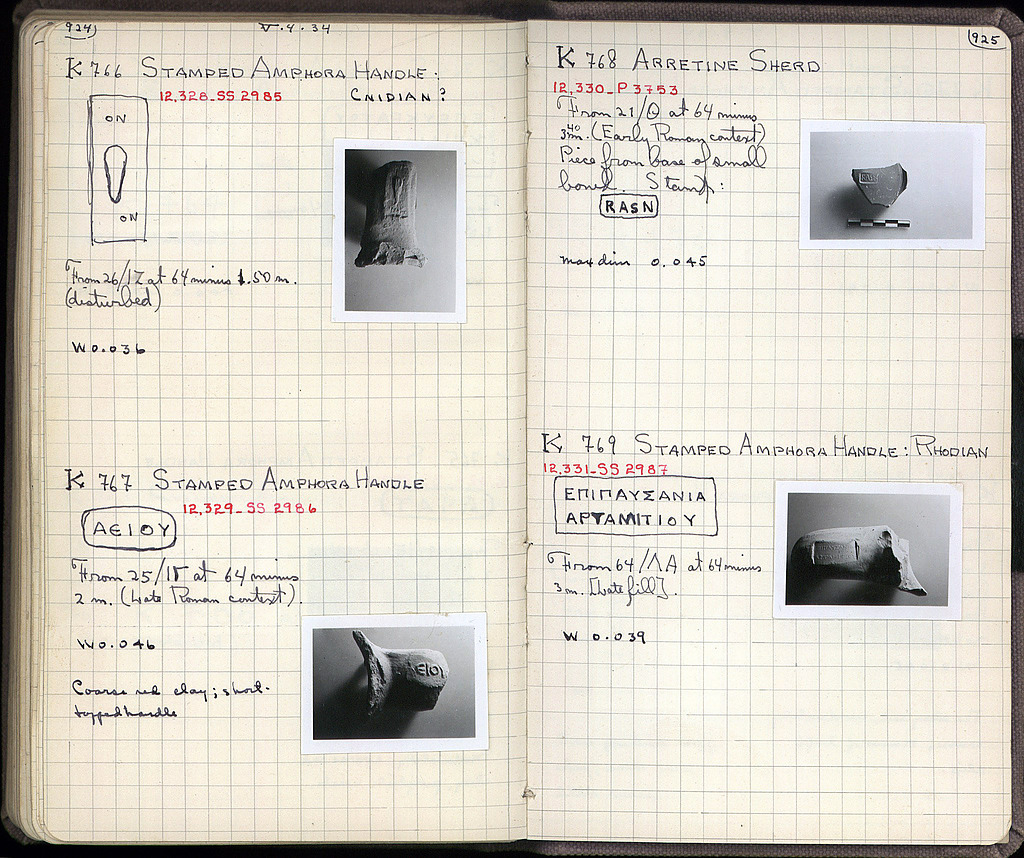 924
V.4.34
K 766 STAMPED AMPHORA HANDLE:
12,328_SS 2985
CNIDIAN?
ON
ON
From 26/ΙΖ at 64 minus 1.50 m.
(disturbed)
W 0.036
K 767 STAMPED AMPHORA HANDLE
12,329_SS 2986
ΑΕΙΟΥ
From 25/ΙΓ at 64 minus
2 m. (Late Roman context).
W 0.046
Coarse red clay; short-
topped handle
ΕΙΟΥ
925
K 768 ARRETINE SHERD
12,330_P 3753
From 21/Θ at 64 minus
3.40 m. (Early Roman context)
Piece from base of small
bowl. Stamp:
RASN
max dim 0.045
K 769 STAMPED AMPHORA HANDLE: RHODIAN
12,331_SS 2987
ΕΠΙΠΑΥΣΑΝΙΑ
ΑΡΤΑΜΙΤΙΟΥ
From 64/ΛΑ at 64 minus
3 m. [Late fill].
W 0.039